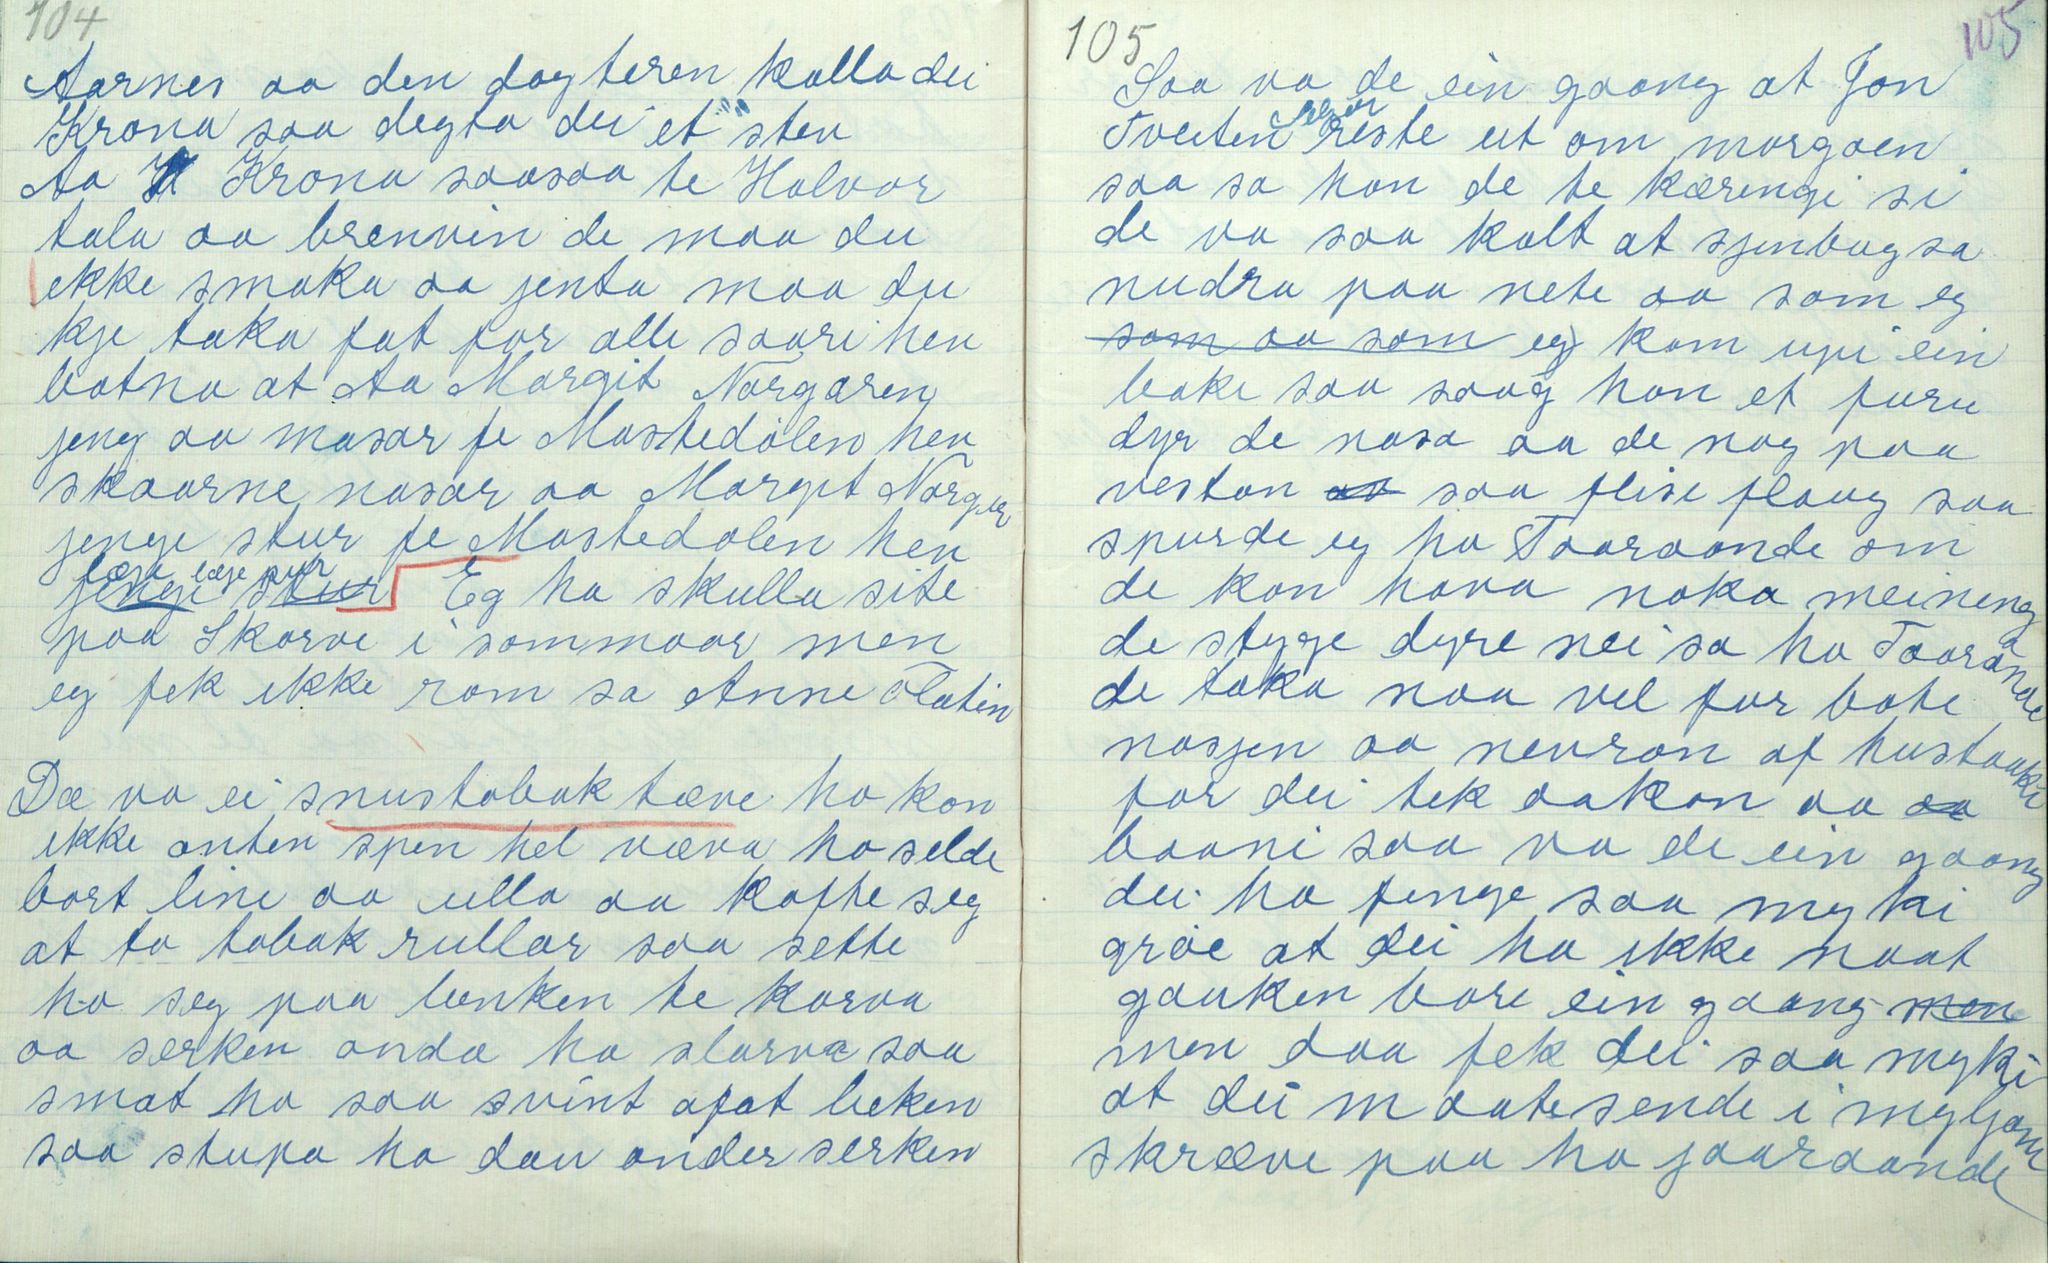 104
Aarnes aa den dogteren kalla dei
Krona saa degta dei et stev
Aa Krona saasaa te Halvor
tala aa brenvin de maa du
ikke smaka aa jenta maa du
kje taka fat for alle saare hev
batna at Aa Margit Norgaren
jeng aa masar fe Mostedölen hev
skaarne nasar aa Margit Norgar
jenge stur fe Mostedalen hev
læje læje pur
jenge stur Eg ha skulla site
paa Skorve i sommaar men
eg fek ikke rom sa Anne Flatin
Dæ va ei snustobak tæve ho kon
ikke anten spen hel væva ho selde
bort line aa ulla aa kafte seg
at to tobak rullar saa sette
ho seg paa benken te karva
aa serken onda ho slarva saa
smat ho saa svint afat beken
saa stupa ho dau onder serken
105
105
Saa va de ein gaang at Jon
Tveiten reste ut om morgaen
saa sa han de te kærengi si
de va saa kalt at sjenbogsa
nudra paa nete aa som eg
som aa som eg kom upi ein
bake saa saag han et furu
dyr de nasa aa de nog paa
vestan aa saa flise flaug saa
spurde eg ho Taaraande om
de kon hava noka meineng
de stygge dyre nei sa ho Taaraande
de taka naa vel for bate
nasjen aa nevran af hustaaki
for dei tek aakon aa aa
baani saa va de ein gaang
dei ha fenge saa myki
gröe at dei ha ikke naat
gauken bare ein gaang men
men daa fek dei saa myki
at dei maatesende i myljom
skræve paa ho jaaraande